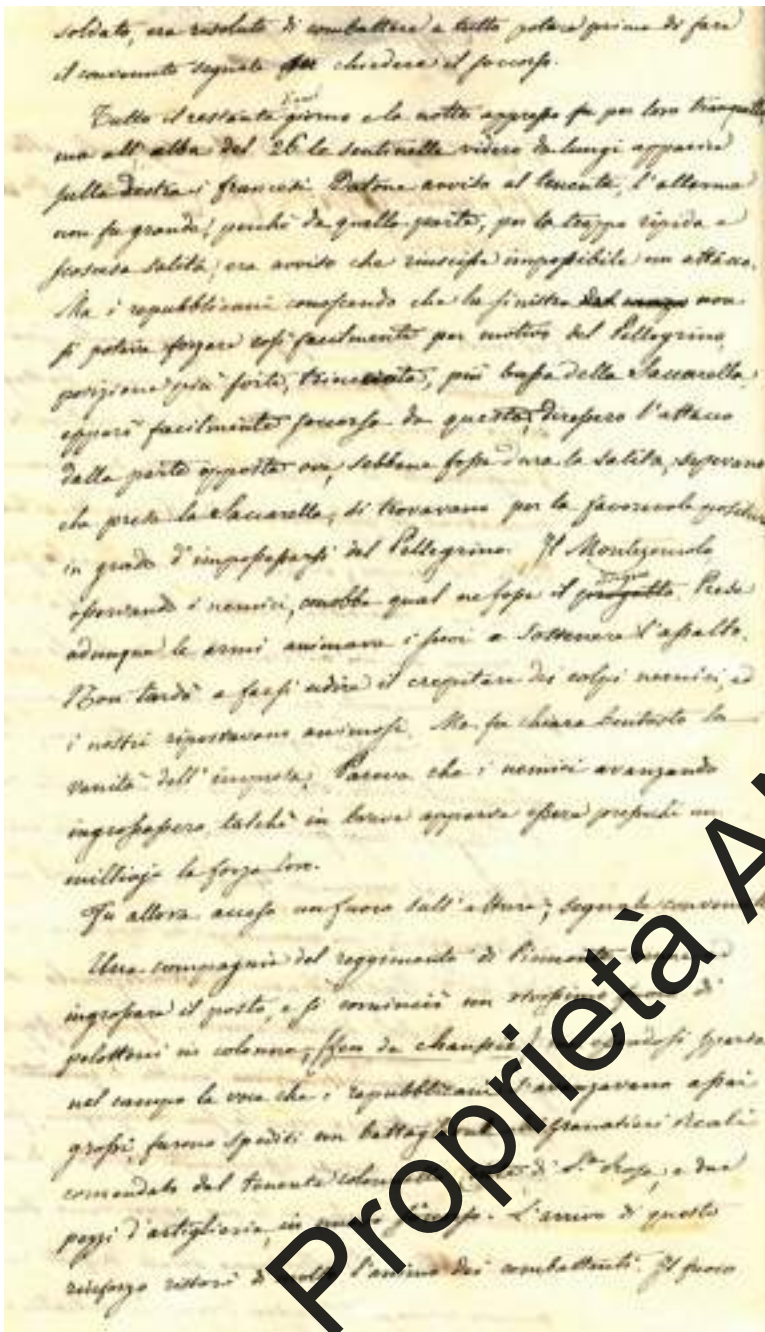 soldato, era risoluto di combattere a tutto potere prima di fare
il convenuto segnale e chiedere il soccorso.
Tutto il restante giorno e la notte appresso fu per loro tranquilla,
ma all'alba del 26 le sentinelle videro da lungi apparire
sulla destra i francesi. Datone avviso al tenente, l'allarme
non fu grande; perchè da quella parte, per la troppo ripida e
scoscesa salita, era avviso che riuscisse impossibile un attacco.
Ma i repubblicani conoscendo che la sinistra del campo non
si poteva forzare così facilmente per motivo del Pellegrino,
posizione più forte, trincerata, più bassa della Saccarella
epperò facilmente soccorsa da questa, diressero l'attacco
dalla parte opposta ove, sebbene fosse dura la salita, sapevano
che presa la Saccarella, si trovavano per la favorevole
in grado d'impossessarsi del Pellegrino. Il Montezemolo
osservando i nemici, conobbe qual ne fosse il progetto. Prese
adunque le armi animava i suoi a sostenere l'assalto.
Non tardò a farsi udire il crepitare dei colpi nemici, ed
i nostri rispostavano animosi. Ma fu chiara tantosto la
vanità dell'impresa. Pareva che i nemici avanzando
ingrossassero, talchè in breve apparve essere presso che un
migliajo la forza loro.
Fu allora acceso un fuoco sull'altura; segnale convenuto
Una compagnia del reggimento di Piemonte
ingrossare il posto, e si cominciò un vivissimo di
pelottoni in colonna, (feu de chaussée) sparsa
nel campo la voce che i repubblicani s'avanzavano assai
grossi, furono spediti un battaglione granatieri Reali
comandato dal tenente colonnello di S.ta Rosa, e due
pezzi d'artiglieria, in L'arrivo di questo
rinforzo ristorò di molto l'animo dei combattenti. Il fuoco
Proprietà